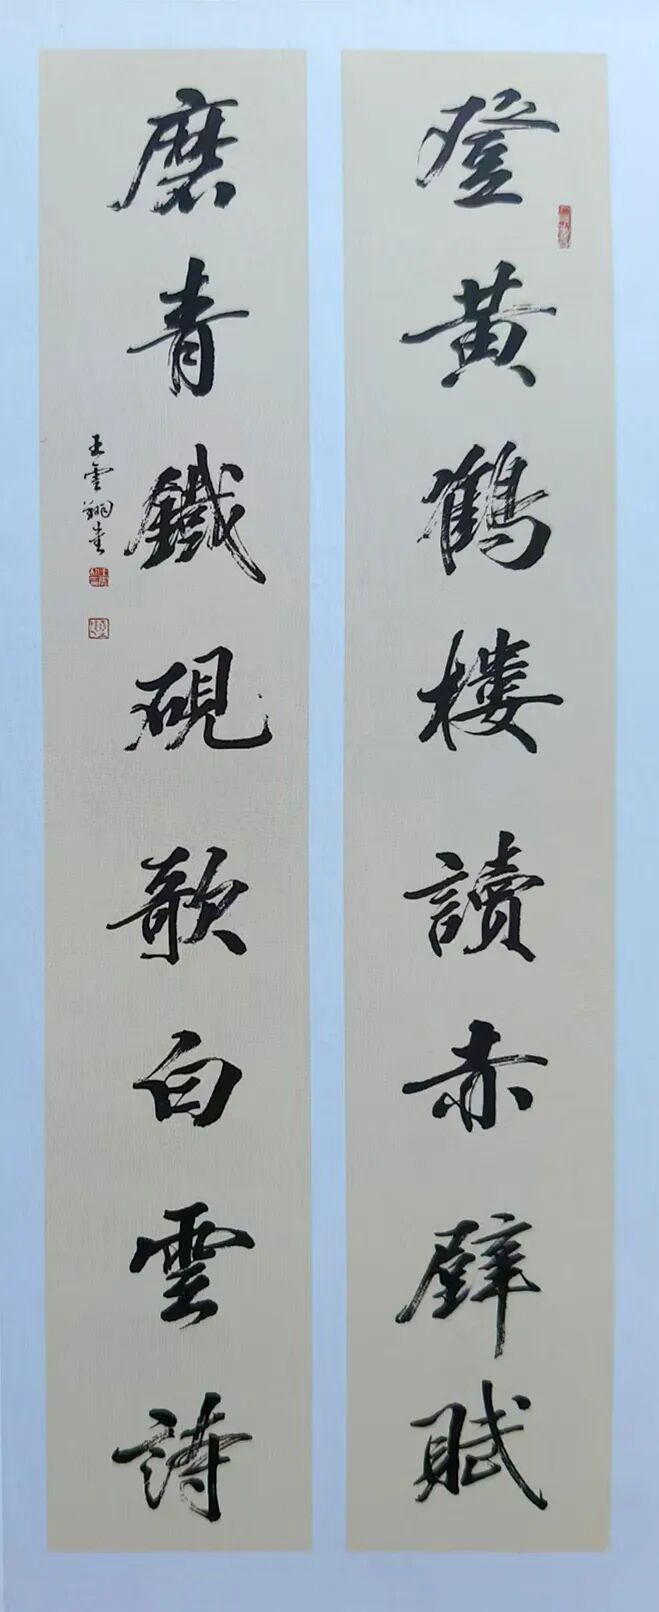 登黄鶴樓讀赤壁賦
磨青鐵硯歌白雲詩
王雲翔書